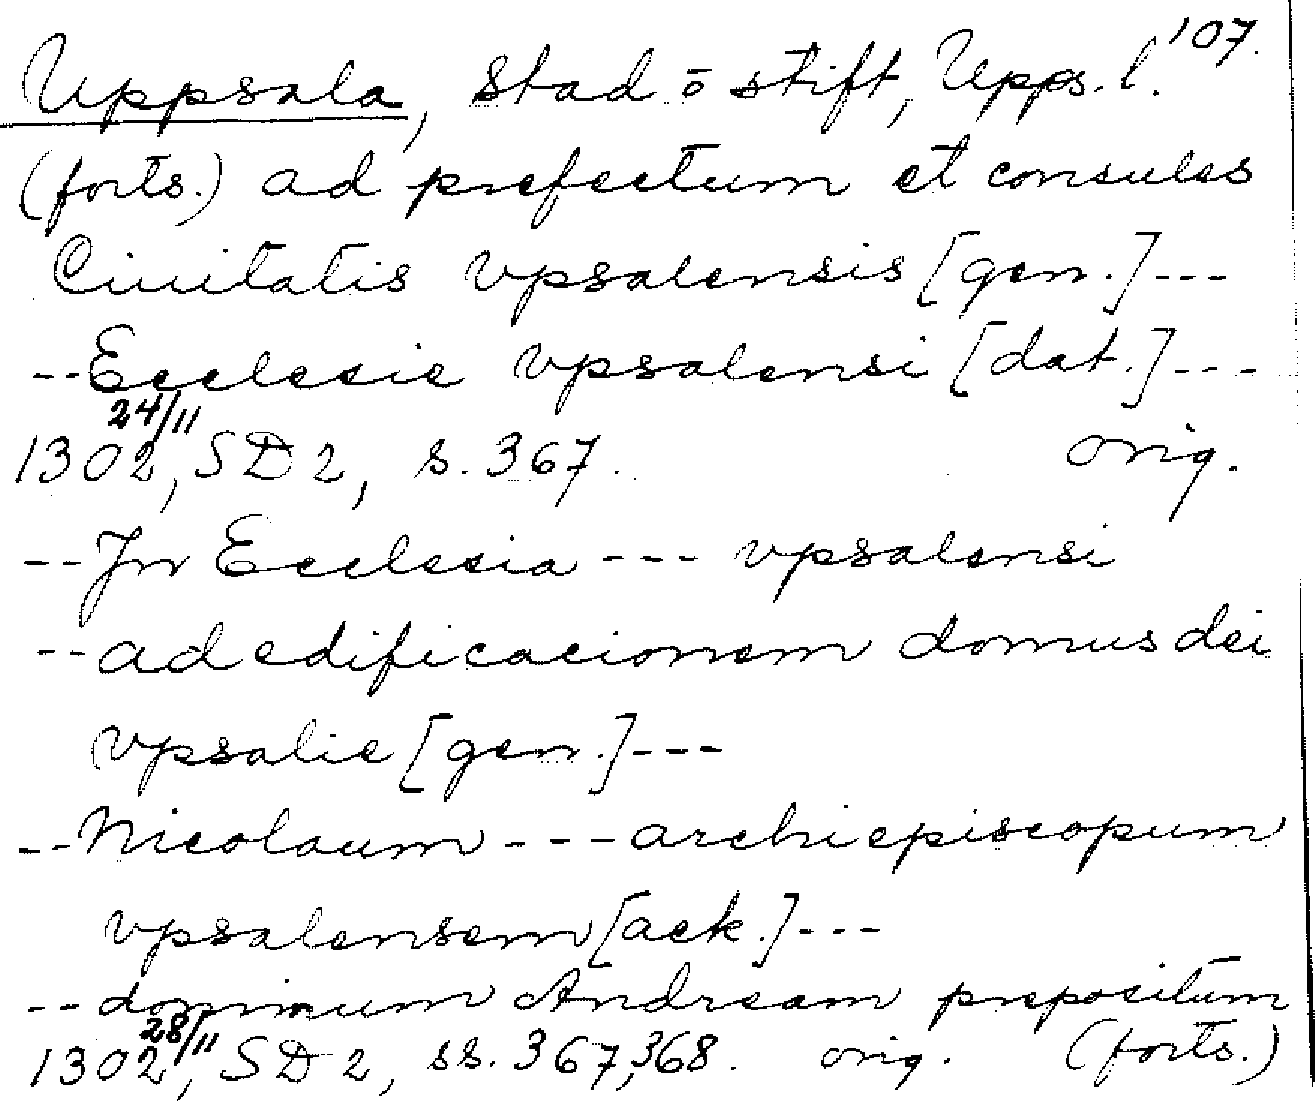 107.
Uppsala, Stad o stift, Upps. l.
(forts.) ad prefectum et consules
Ciuitatis vpsalensis [gen.]---
--Ecclesie vpsalensi [dat.]---
24/11
1302, SD 2, s. 367. orig.
--Jn Ecclesia --- vpsalensi
--ad edificacionem domus dei
vpsalie [gen.]---
--Nicolaum --- archiepiscopum
vpsalensem [ack.]---
--dominum Andream prepositum
28/11
1302, SD 2, ss. 367, 368. orig. (forts.)